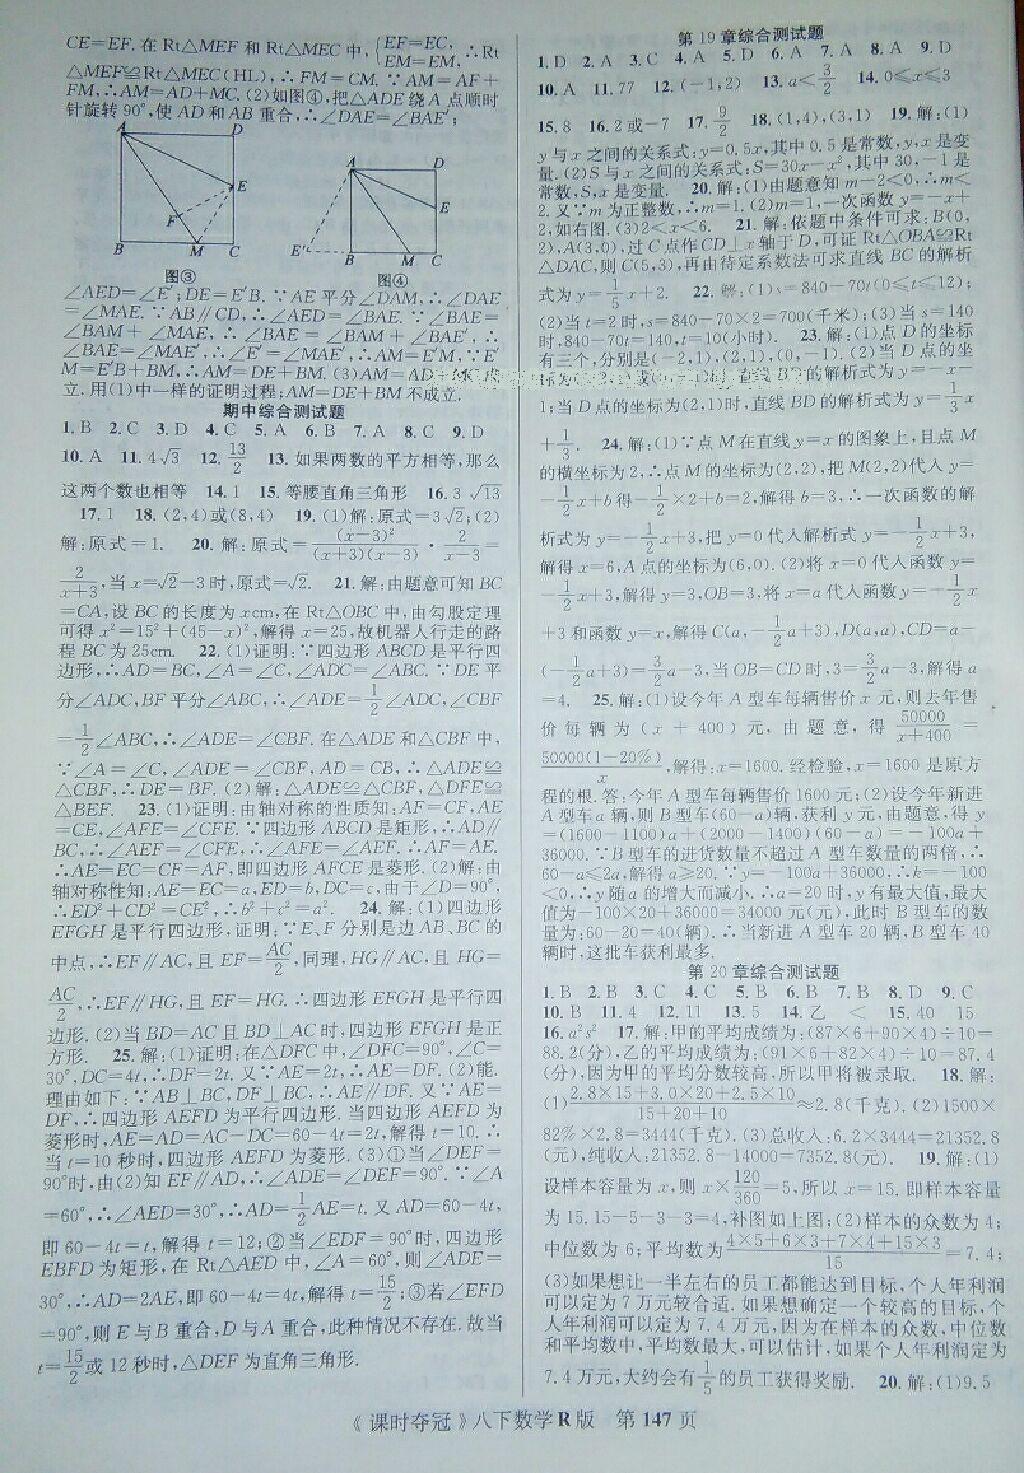 CE=EF.在Rt△MEF和Rt△MEC中,{EF=EC, EM=EM,∴Rt
△MEF≌Rt△MEC(HL),∴FM=CM.∵AM=AF+
FM,∴AM=AD+MC.(2)如图④,把△ADE绕A点顺时
针旋转90°,使AD和AB重合,∴∠DAE=∠BAE′;
A D E F B M C
图③
A D E E′ B M C
图④
∠AED=∠E′;DE=E′B.∵AE平分∠DAM,∴∠DAE
=∠MAE.∵AB∥CD,∴∠AED=∠BAE.∵∠BAE=
∠BAM+∠MAE,∴∠BAE=∠BAM+∠BAE′,∴
∠BAE=∠MAE′,∴∠E′=∠MAE′,∴AM=E′M,∵E′
M=E′B+BM,∴AM=DE+BM.(3)AM=AD+MC成
立.用(1)中一样的证明过程;AM=DE+BM不成立.
期中综合测试题
1.B 2.C 3.D 4.C 5.A 6.B 7.A 8.C 9.D
10.A 11.4√3 12.13/2 13.如果两数的平方相等,那么
这两个数也相等 14.1 15.等腰直角三角形 16.3 √13
17.1 18.(2,4)或(8,4) 19.(1)解:原式=3√2;(2)
解:原式=1. 20.解:原式=(x-3)²/(x+3)(x-3)·2/(x-3)=
2/(x+3),当x=√2-3时,原式=√2. 21.解:由题意可知BC
=CA,设BC的长度为xcm,在Rt△OBC中,由勾股定理
可得x²=15²+(45-x)²,解得x=25,故机器人行走的路
程BC为25cm. 22.(1)证明:∵四边形ABCD是平行四
边形,∴AD=BC,∠A=∠C,∠ADC=∠ABC.∵DE平
分∠ADC,BF平分∠ABC,∴∠ADE=1/2∠ADC,∠CBF
=1/2∠ABC,∴∠ADE=∠CBF.在△ADE和△CBF中,
∵∠A=∠C,∠ADE=∠CBF,AD=CB,∴△ADE≌
△CBF,∴DE=BF.(2)解:△ADE≌△CBF,△DFE≌
△BEF. 23.(1)证明:由轴对称的性质知:AF=CF,AE
=CE,∠AFE=∠CFE.∵四边形ABCD是矩形,∴AD∥
BC,∴∠AEF=∠CFE,∴∠AFE=∠AEF.∴AF=AE.
∴AE=EC=CF=AF,即四边形AFCE是菱形.(2)解:由
轴对称性知:AE=EC=a,ED=b,DC=c,由于∠D=90°,
∴ED²+CD²=CE²,∴b²+c²=a². 24.解:(1)四边形
EFGH是平行四边形,证明:∵E、F分别是边AB、BC的
中点,∴EF∥AC,且EF=AC/2,同理,HG∥AC,且HG=
AC/2,∴EF∥HG,且EF=HG.∴四边形EFGH是平行四
边形.(2)当BD=AC且BD⊥AC时,四边形EFGH是正
方形. 25.解:(1)证明:在△DFC中,∠DFC=90°,∠C=
30°,DC=4t,∴DF=2t.又∵AE=2t,∴AE=DF.(2)能.
理由如下:∵AB⊥BC,DF⊥BC,∴AE∥DF.又∵AE=
DF,∴四边形AEFD为平行四边形.当四边形AEFD为
菱形时,AE=AD=AC-DC=60-4t=2t,解得t=10.∴
当t=10秒时,四边形AEFD为菱形.(3)①当∠DEF=
90°时,由(2)知EF∥AD,∴∠ADE=∠DEF=90°.∵∠A
=60°,∴∠AED=30°,∴AD=1/2AE=t.又AD=60-4t,
即60-4t=t,解得t=12;②当∠EDF=90°时,四边形
EBFD为矩形,在Rt△AED中,∠A=60°,则∠ADE=
30°,∴AD=2AE,即60-4t=4t,解得t=15/2;③若∠EFD
=90°,则E与B重合,D与A重合,此种情况不存在.故当
t=15/2或12秒时,△DEF为直角三角形.
第19章综合测试题
1.D 2.A 3.C 4.A 5.D 6.A 7.A 8.A 9.D
10.A 11.77 12.(-1,2) 13.a<3/2 14.0≤x≤3
15.8 16.2或-7 17.9/2 18.(1,4),(3,1) 19.解:(1)
y与x之间的关系式:y=0.5x,其中0.5是常数,y,x是变
量.(2)S与x之间的关系式:S=30x-x²,其中30,-1是
常数,S,x是变量. 20.解:(1)由题意知m-2<0,∴m<
2.又∵m为正整数,∴m=1.(2)m=1,一次函数y=-x+
2,如右图.(3)2<x<6. 21.解:依题中条件可求:B(0,
2),A(3,0),过C点作CD⊥x轴于D,可证Rt△OBA≌Rt
△DAC,则C(5,3),再由待定系数法可求直线BC的解析
式为y=1/5x+2. 22.解:(1)s=840-70t(0≤t≤12);
(2)当t=2时,s=840-70×2=700(千米);(3)当s=140
时,840-70t=140,t=10(小时). 23.解:(1)点D的坐标
有三个,分别是(-2,1),(2,1),(0,-1).(2)当D点的坐
标为 或(0,-1)时,直线BD的解析式为y=-x-
1;当D点的坐标为(2,1)时,直线BD的解析式为y=1/3x
+1/3. 24.解:(1)∵点M在直线y=x的图象上,且点M
的横坐标为2,∴点M的坐标为(2,2),把M(2,2)代入y=
-1/2x+b得-1/2×2+b=2,解得b=3,∴一次函数的解
析式为y=-1/2x+3,把y=0代入解析式y=-1/2x+3,
解得x=6,A点的坐标为(6,0).(2)将x=0代入函数y=
-1/2x+3,解得y=3,OB=3,将x=a代入函数y=-1/2x
+3和函数y=x,解得C(a,-1/2a+3),D(a,a),CD=a-
(-1/2a+3)=3/2a-3,当OB=CD时,3=3/2a-3,解得a
=4. 25.解:(1)设今年A型车每辆售价x元,则去年售
价每辆为(x+400)元,由题意,得50000/(x+400)=
50000(1-20%)/x,解得:x=1600.经检验,x=1600是原方
程的根.答:今年A型车每辆售价1600元;(2)设今年新进
A型车a辆,则B型车(60-a)辆,获利y元,由题意,得y
=(1600-1100)a+(2000-1400)(60-a)=-100a+
36000.∵B型车的进货数量不超过A型车数量的两倍,∴
60-a≤2a,解得a≥20.∵y=-100a+36000,∴k=-100
<0,∴y随a的增大而减小.∴a=20时,y有最大值,最大
值为-100×20+36000=34000元(元),此时B型车的数
量为:60-20=40(辆).∴当新进A型车20辆,B型车40
辆时,这批车获利最多.
第20章综合测试题
1.B 2.B 3.C 4.C 5.B 6.B 7.B 8.D 9.C
10.B 11.4 12.11 13.5 14.乙 < 15.40 15
16.a²s² 17.解:甲的平均成绩为:(87×6+90×4)÷10=
88.2(分),乙的平均成绩为:(91×6+82×4)÷10=87.4
(分),因为甲的平均分数较高,所以甲将被录取. 18.解:
(1)2.8×15+3.0×20+2.5×10/15+20+10≈2.8(千克).(2)1500×
82%×2.8=3444(千克).(3)总收入:6.2×3444=21352.8
(元),纯收入:21352.8-14000=7352.8(元). 19.解:(1)
设样本容量为x,则x×120/360=5,所以x=15.即样本容量
为15.15-5-3-3=4,补图如上图;(2)样本的众数为4;
中位数为6;平均数为4×5+6×3+7×4+15×3/15=7.4;
(3)如果想让一半左右的员工都能达到目标,个人年利润
可以定为7万元较合适.如果想确定一个较高的目标,个
人年利润可以定为7.4万元,因为在样本的众数,中位数
和平均数中,平均数最大,可以估计,如果个人年利润定为
7.4万元,大约会有1/5的员工获得奖励. 20.解:(1)9.5
《课时夺冠》八下数学R版 第147页